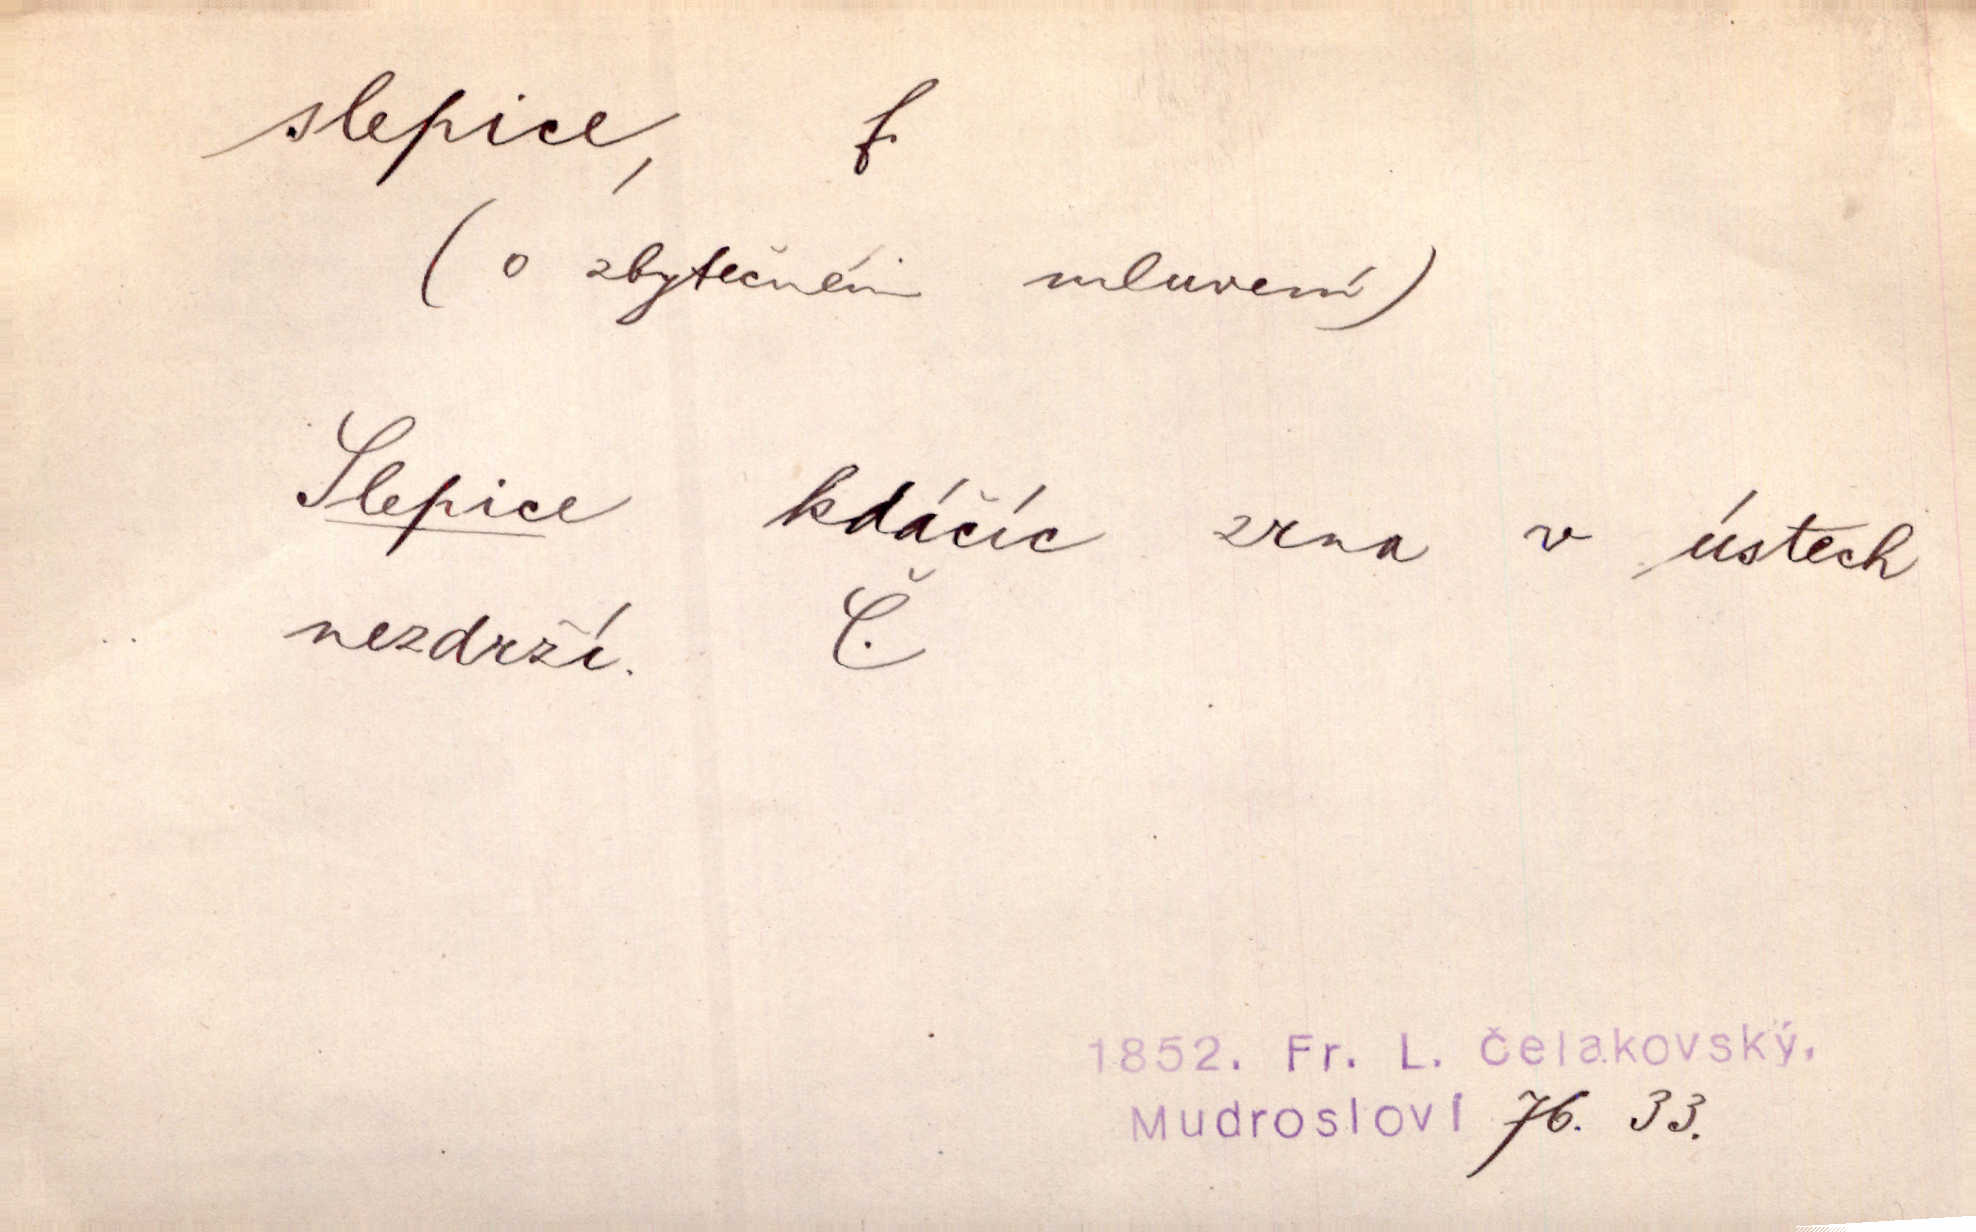 slepice, f.
(o zbytečném mluvení)
Slepice kdáčíc zrna v ústech
nezdrží. Č.
1852. Fr. L. Čelakovský.
Mudrosloví 76. 33.